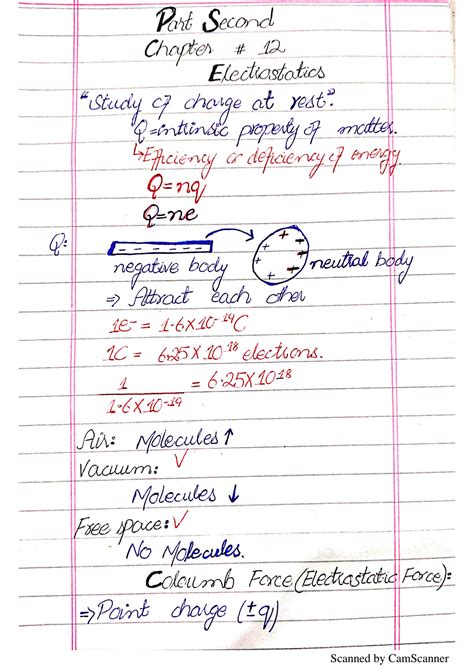 Part Second
Chapter # 12
Electrostatics
"Study of charge at rest".
Q=intrinsic property of matter.
↳Efficiency or deficiency of energy
Q=nq
Q=ne
Q:
- - - - - -
+ + + + + +
negative body
neutral body
⇒ Attract each other
1e⁻ = 1.6×10⁻¹⁹C
1C = 6.25×10¹⁸ electrons.
1 / 1.6×10⁻¹⁹ = 6.25×10¹⁸
Air: Molecules ↑
Vacuum: ✓
Molecules ↓
Free space: ✓
No Molecules.
Coloumb Force (Electrostatic Force):-
⇒Point charge (±q)
Scanned by CamScanner